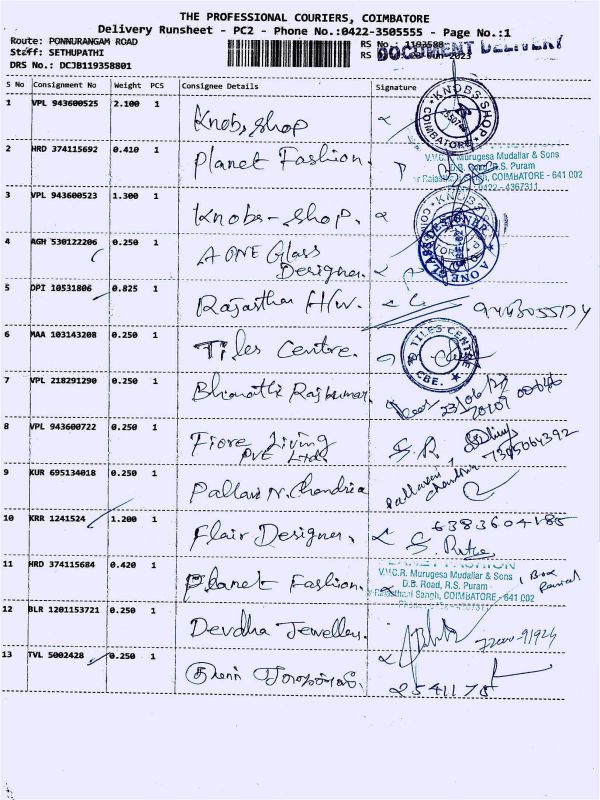 THE PROFESSIONAL COURIERS, COIMBATORE
Delivery Runsheet - PC2 - Phone No.:0422-3505555 - Page No.:1
Route: PONNURANGAM ROAD
Staff: SETHUPATHI
DRS No.: DCJB119358801
RS No.: 1193588
DOCUMENT DELIVERY
S No Consignment No Weight PCS Consignee Details Signature
1 VPL 943600525 2.100 1 Knobs shop
KNOBS SHOP
COIMBATORE
2 HRD 374115692 0.410 1 Planet Fashion.
V.M.C.R. Murugesa Mudaliar & Sons
D.B. Road, R.S. Puram
COIMBATORE - 641 002
0422 - 4367311
3 VPL 943600523 1.300 1 Knobs-shop.
4 AGH 530122206 0.250 1 A ONE Glass
Designer.
A ONE GLASS DESIGNER
5 DPI 10531806 0.825 1 Rajasthan H/W.
6 MAA 103143208 0.250 1 Tiles Centre.
TILES CENTRE
CBE.
7 VPL 218291290 0.250 1 Bharathi Rajkumar.
8 VPL 943600722 0.250 1 Fiore Living
PVE Ltd.
S.R
7305064392
9 KUR 695134018 0.250 1 Pallavi N. Chandria
10 KRR 1241524 1.200 1 Flair Designer.
6383604185
11 HRD 374115684 0.420 1 Planet Fashion.
PLANET FASHION
V.M.C.R. Murugesa Mudaliar & Sons
D.B. Road, R.S. Puram
Rajasthani Sangh, COIMBATORE - 641 002
1 Box
12 BLR 1201153721 0.250 1 Devdha Jewellers.
13 TVL 5002428 0.250 1
2541178